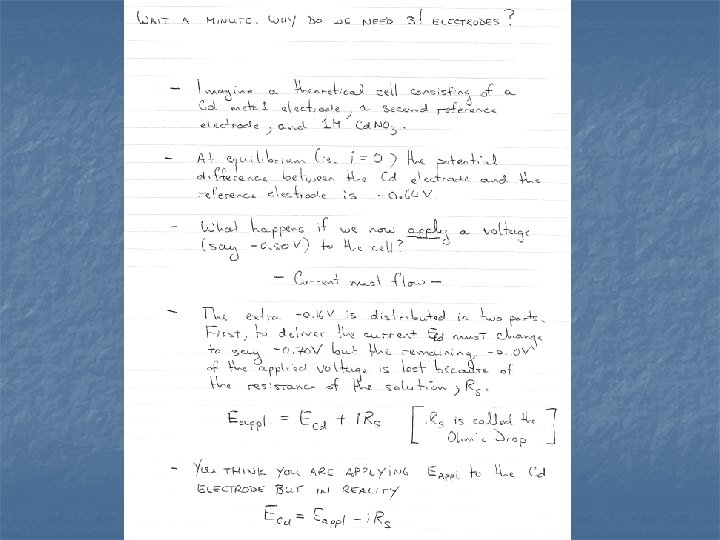 WAIT A MINUTE. WHY DO WE NEED 3! ELECTRODES?
- Imagine a theoretical cell consisting of a
Cd metal electrode, a second reference
electrode, and 1M CdNO3.
- At equilibrium (ie. i = 0) the potential
difference between the Cd electrode and the
reference electrode is -0.64V.
- What happens if we now apply a voltage
(say -0.80V) to the cell?
- Current must flow -
- The extra -0.16V is distributed in two parts.
First, to deliver the current ECd must change
to say -0.70V but the remaining
of the applied voltage is lost because of
the resistance of the solution, Rs.
Eappl = ECd + iRs [iRs is called the
Ohmic Drop]
- YOU THINK YOU ARE APPLYING EAppl to the Cd
ELECTRODE BUT IN REALITY
ECd = Eappl - iRs